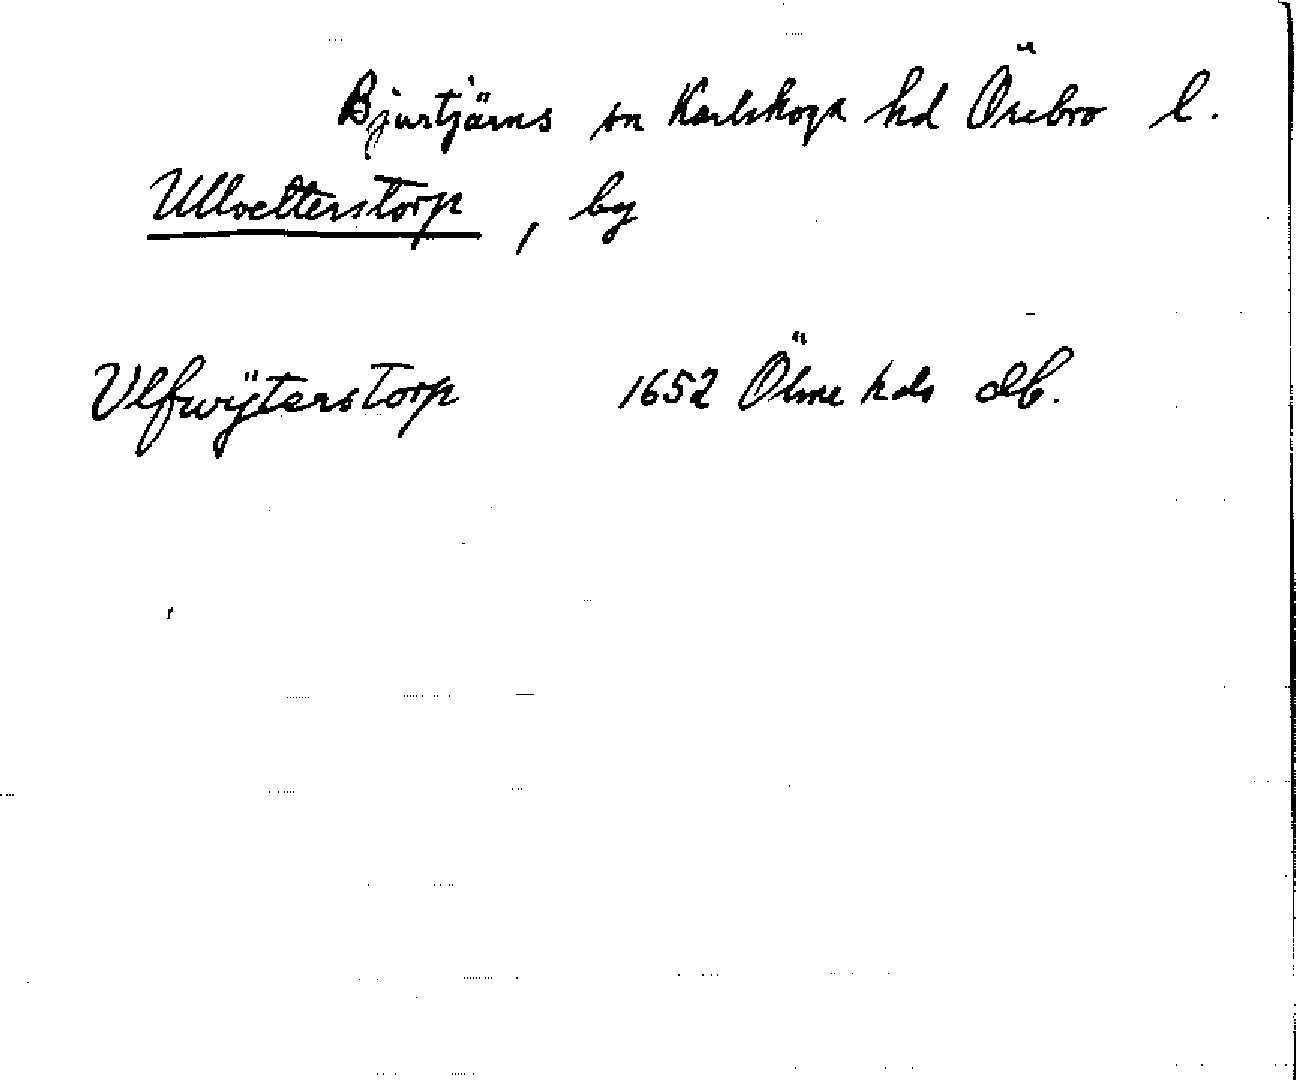 Bjurtjärns sn Karlskoga hd Örebro l.
Ullvetterstorp, by
Ulfwÿterstorp 1652 Ölme hds db.